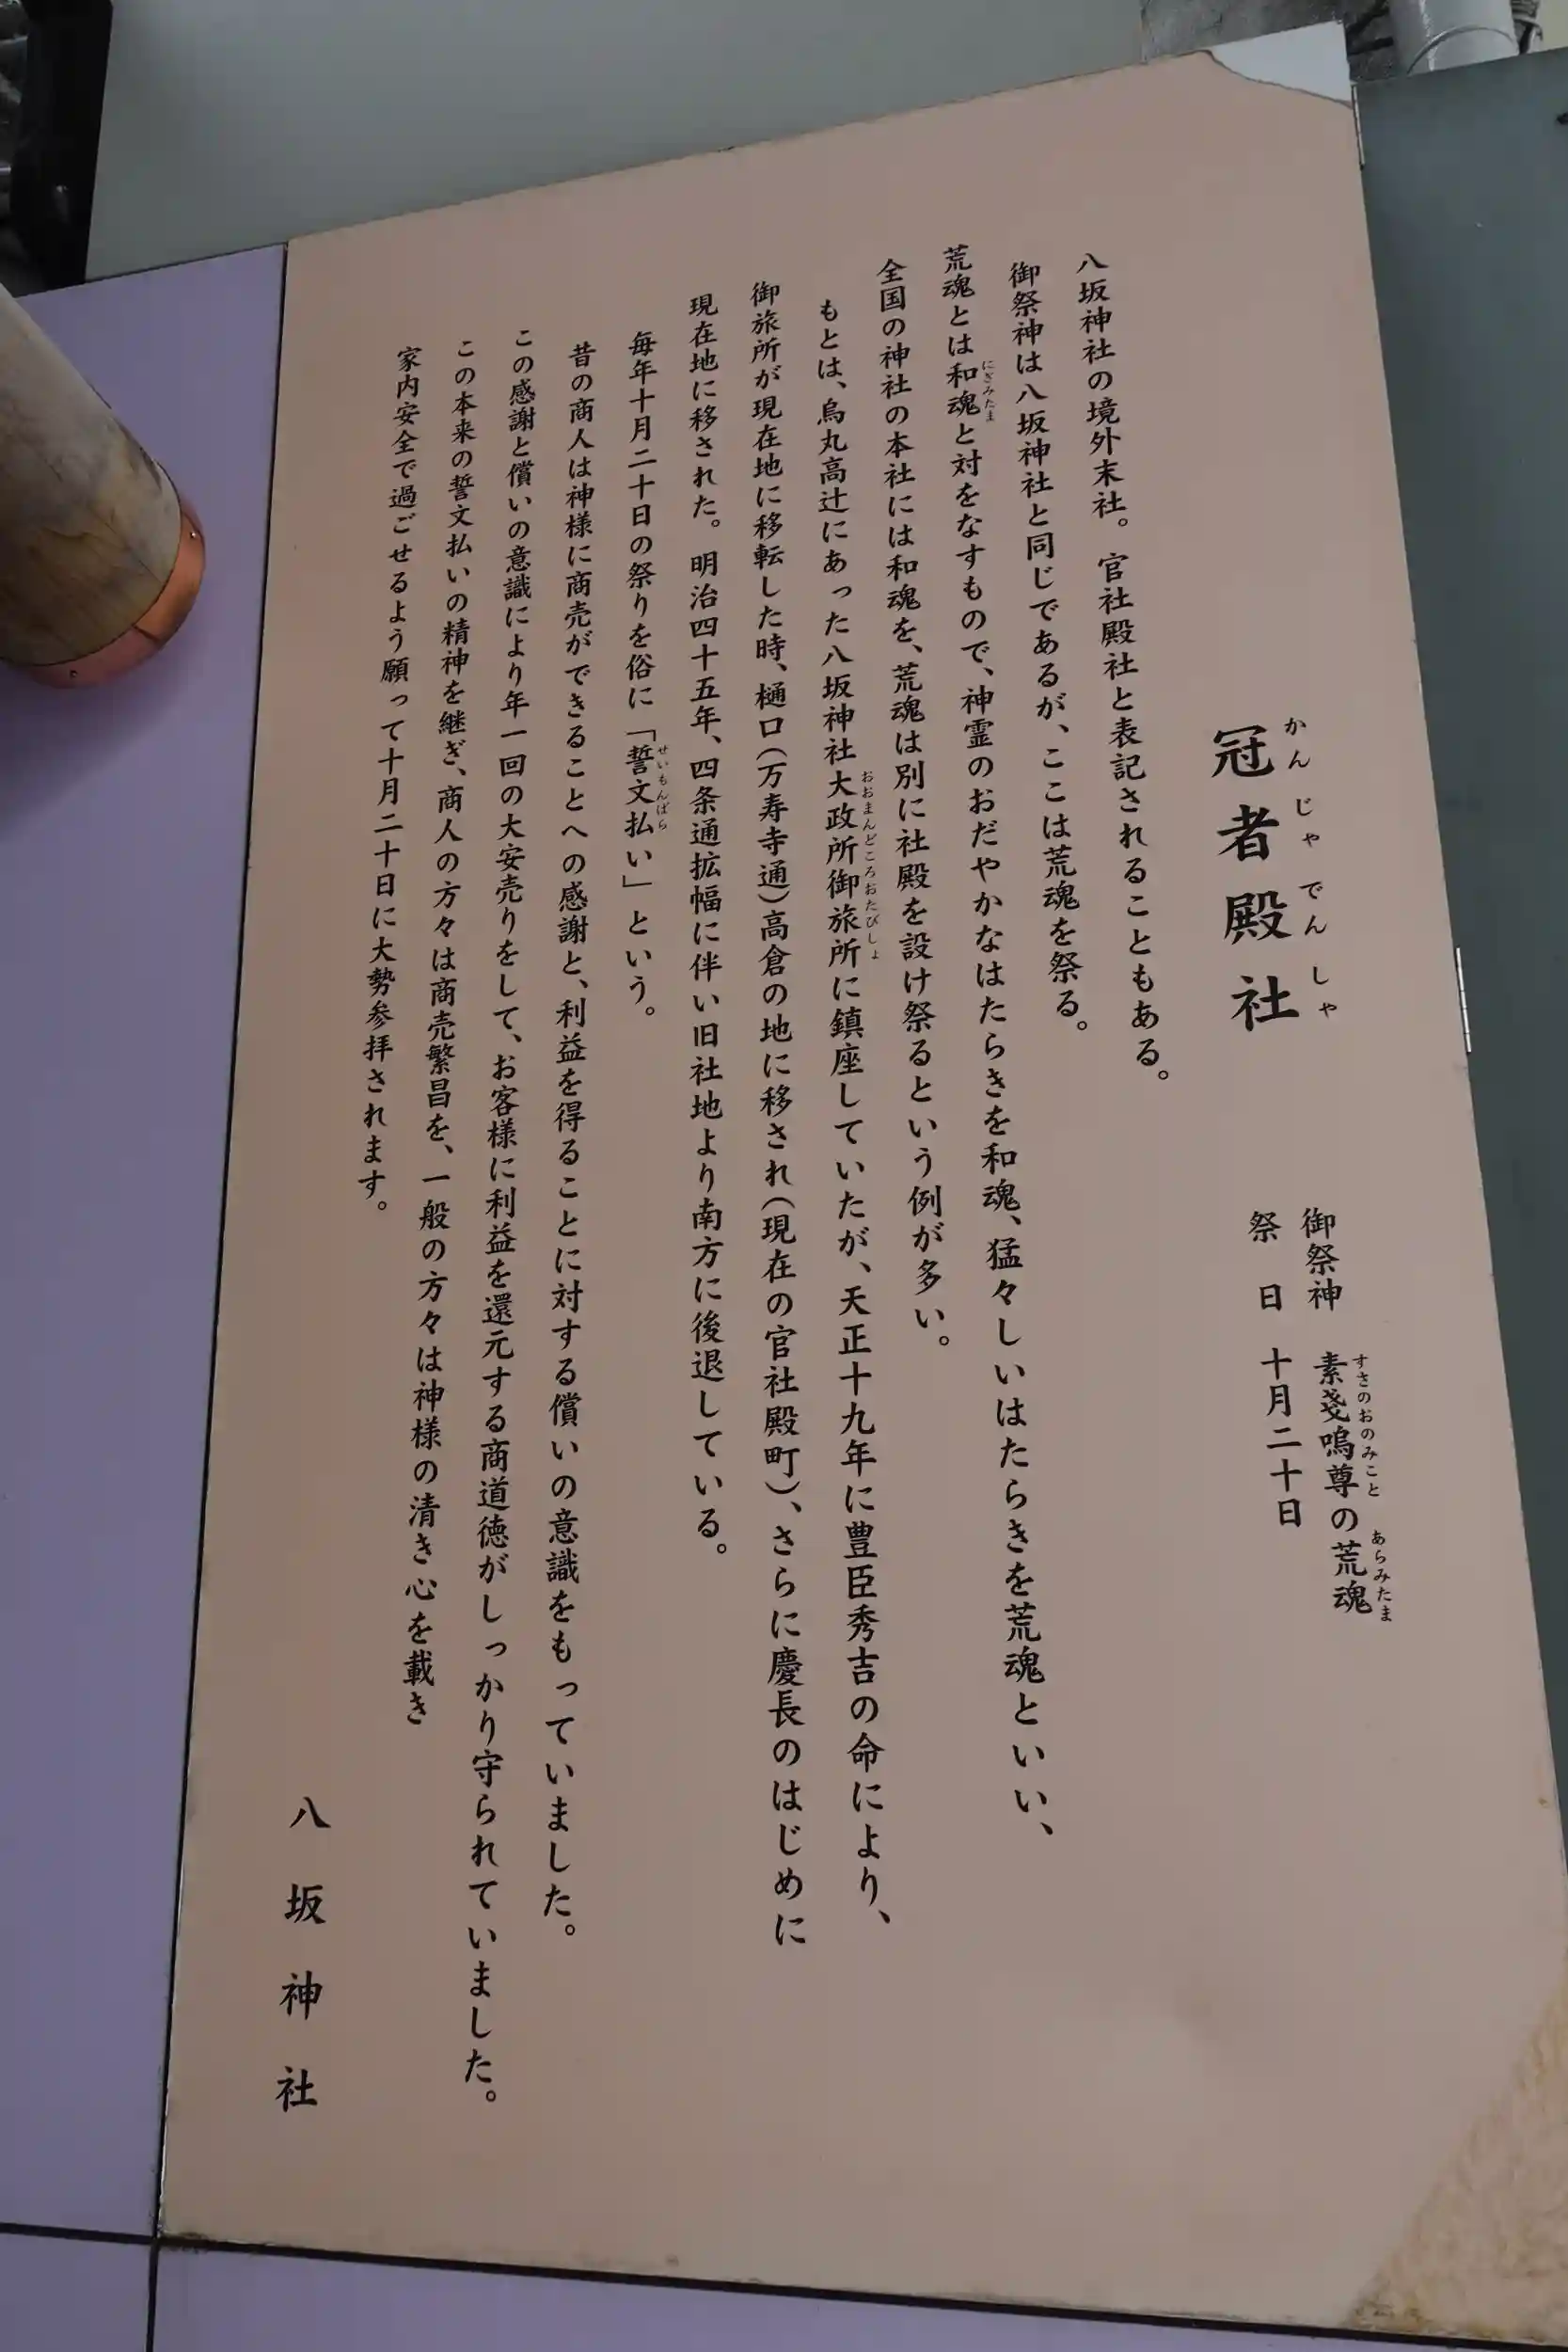 冠者殿社
かんじゃでんしゃ
御祭神 素戔嗚尊の荒魂
すさのおのみこと あらみたま
祭日 十月二十日
八坂神社の境外末社。官社殿社と表記されることもある。
御祭神は八坂神社と同じであるが、ここは荒魂を祭る。
荒魂とは和魂と対をなすもので、神霊のおだやかなはたらきを和魂、猛々しいはたらきを荒魂といい、
にぎみたま
全国の神社の本社には和魂を、荒魂は別に社殿を設け祭るという例が多い。
もとは、烏丸高辻にあった八坂神社大政所御旅所に鎮座していたが、天正十九年に豊臣秀吉の命により、
おおまんどころおたびしょ
御旅所が現在地に移転した時、樋口(万寿寺通)高倉の地に移され(現在の官社殿町)、さらに慶長のはじめに
現在地に移された。明治四十五年、四条通拡幅に伴い旧社地より南方に後退している。
毎年十月二十日の祭りを俗に「誓文払い」という。
せいもんばら
昔の商人は神様に商売ができることへの感謝と、利益を得ることに対する償いの意識をもっていました。
この感謝と償いの意識により年一回の大安売りをして、お客様に利益を還元する商道徳がしっかり守られていました。
この本来の誓文払いの精神を継ぎ、商人の方々は商売繁昌を、一般の方々は神様の清き心を載き
家内安全で過ごせるよう願って十月二十日に大勢参拝されます。
八坂神社